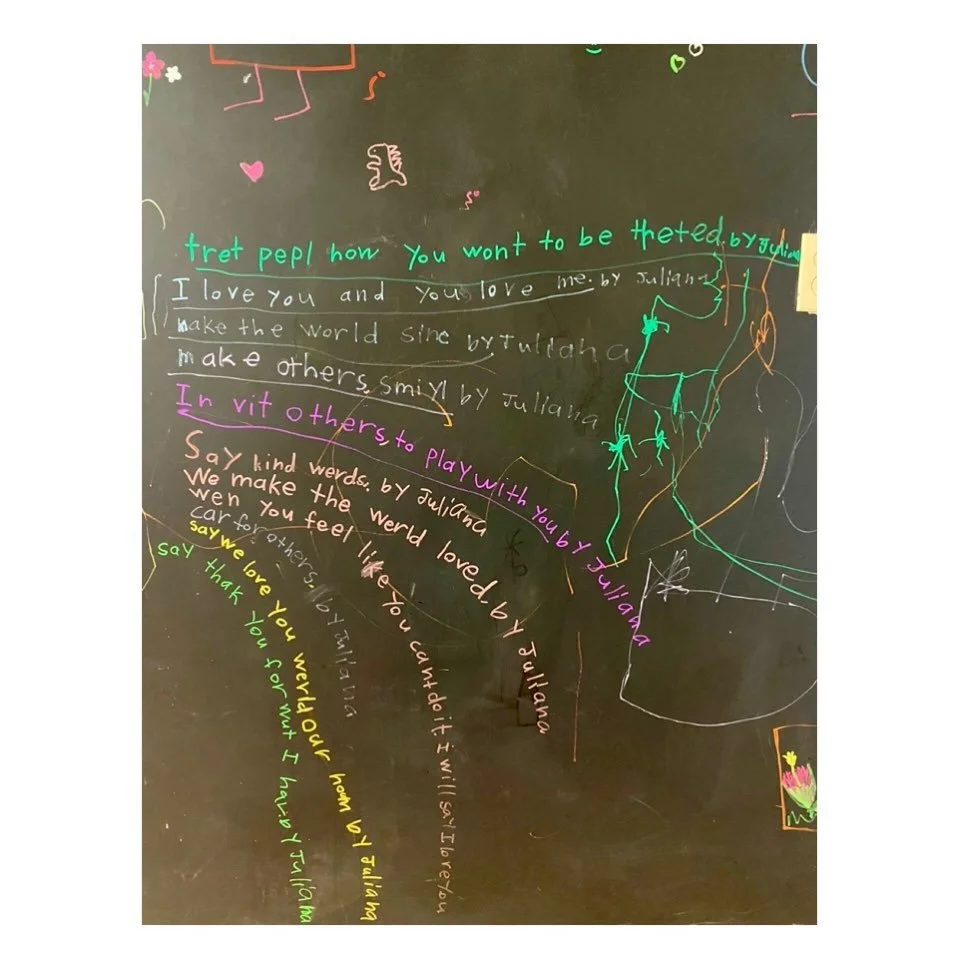 tret pepl how you wont to be theted. by Juliana
I love you and you love me. by Juliana
make the world sine by Juliana
make others, smiyl by Juliana
In vit others, to play with you by Juliana
Say kind werds. by Juliana
We make the werld loved, by Juliana
wen you feel like you cant do it i will say I love you
car for others. by Juliana
say we love you werld our hown by Juliana
say thak you for wut I hav. by Juliana